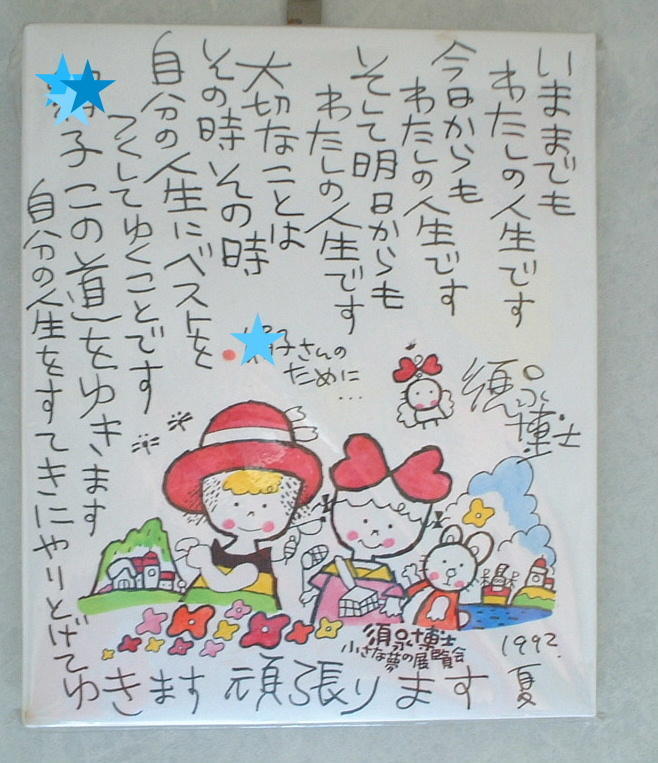 いままでも
わたしの人生です
今日からも
わたしの人生です
そして明日からも
わたしの人生です
大切なことは
その時その時
自分の人生にベストを
つくしてゆくことです
子この道をゆきます
自分の人生をすてきにやりとげて
ゆきます 頑張ります
子さんの
ために…
須永博士
須永博士
小さな夢の展覧会
1992.
夏